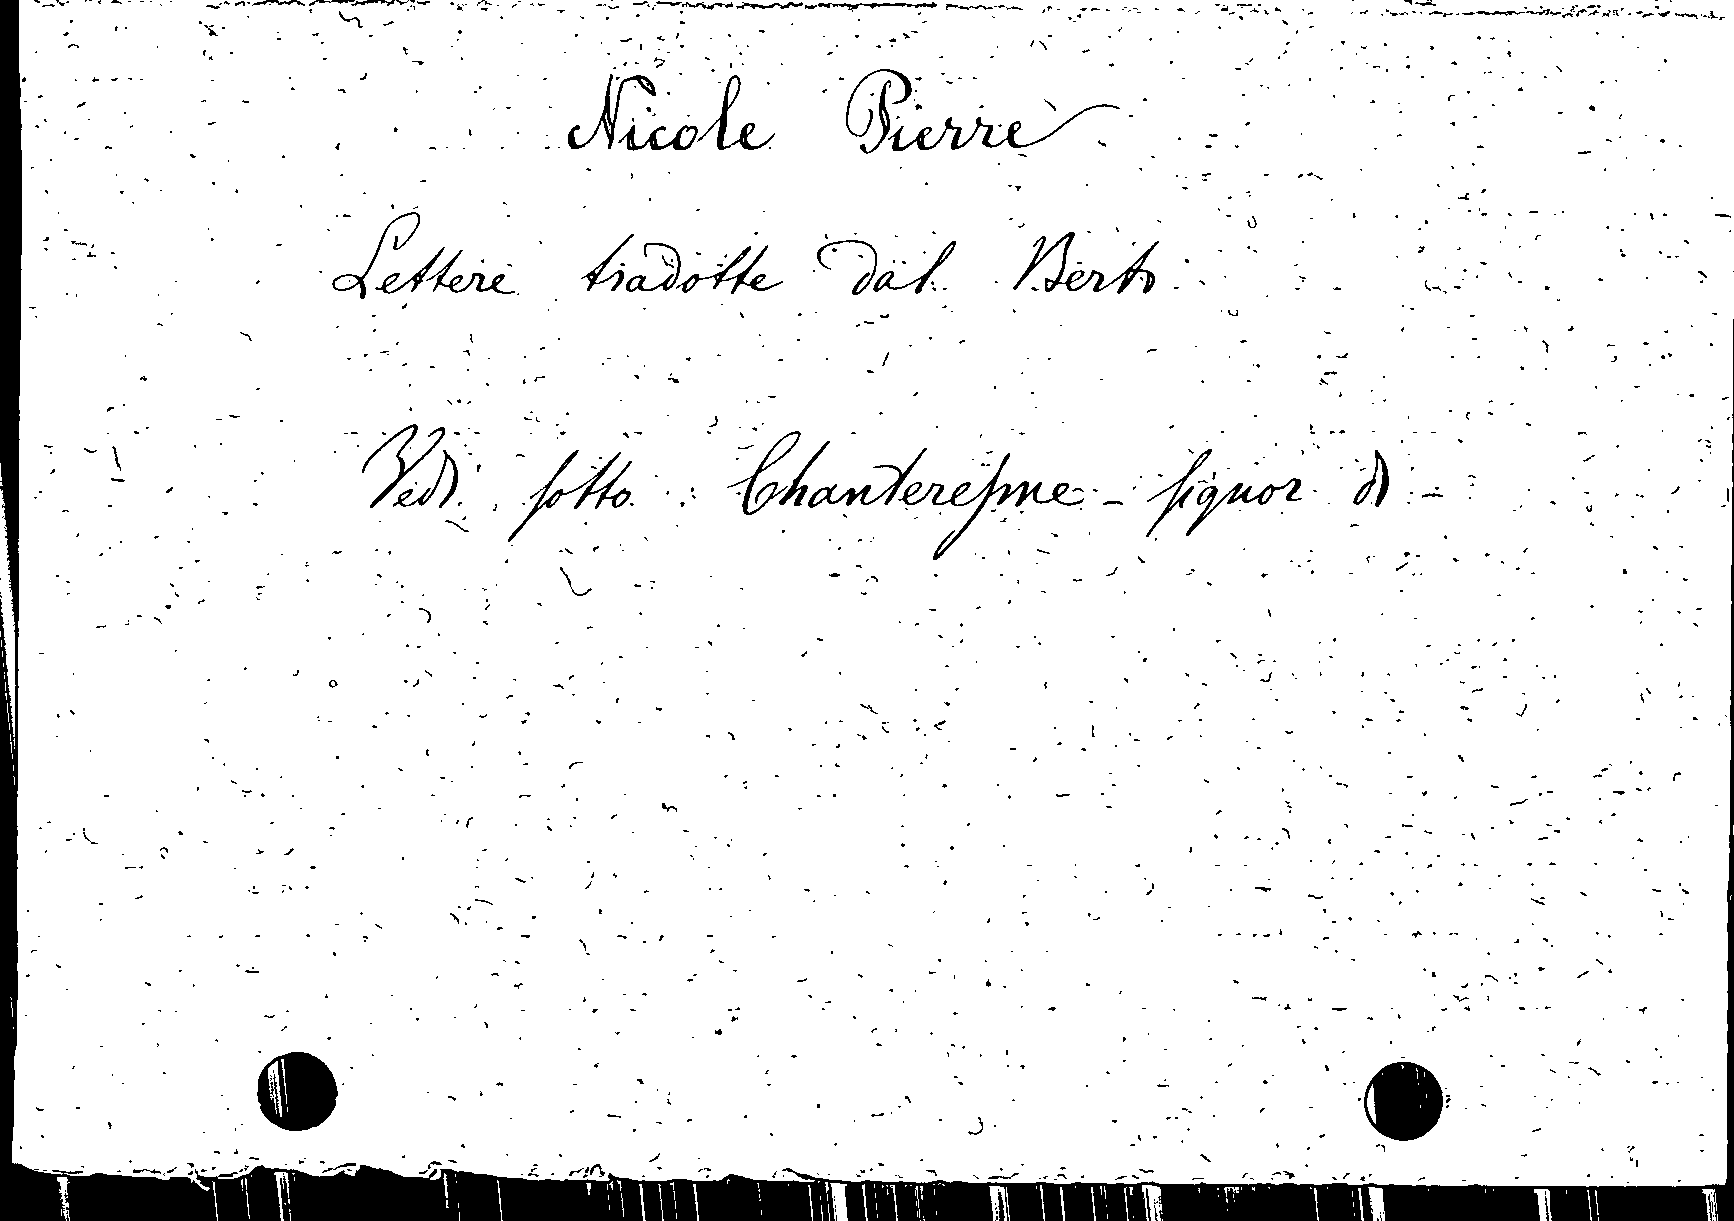 Nicole Pierre
Lettere tradotte dal Berti
Vedi sotto: Chanteresme - signor di -